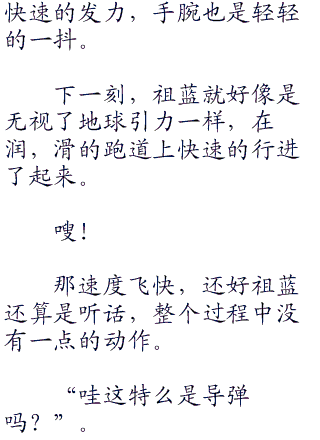 快速的发力，手腕也是轻轻
的一抖。
下一刻，祖蓝就好像是
无视了地球引力一样，在
润，滑的跑道上快速的行进
了起来。
嗖！
那速度飞快，还好祖蓝
还算是听话，整个过程中没
有一点的动作。
“哇这特么是导弹
吗？”。